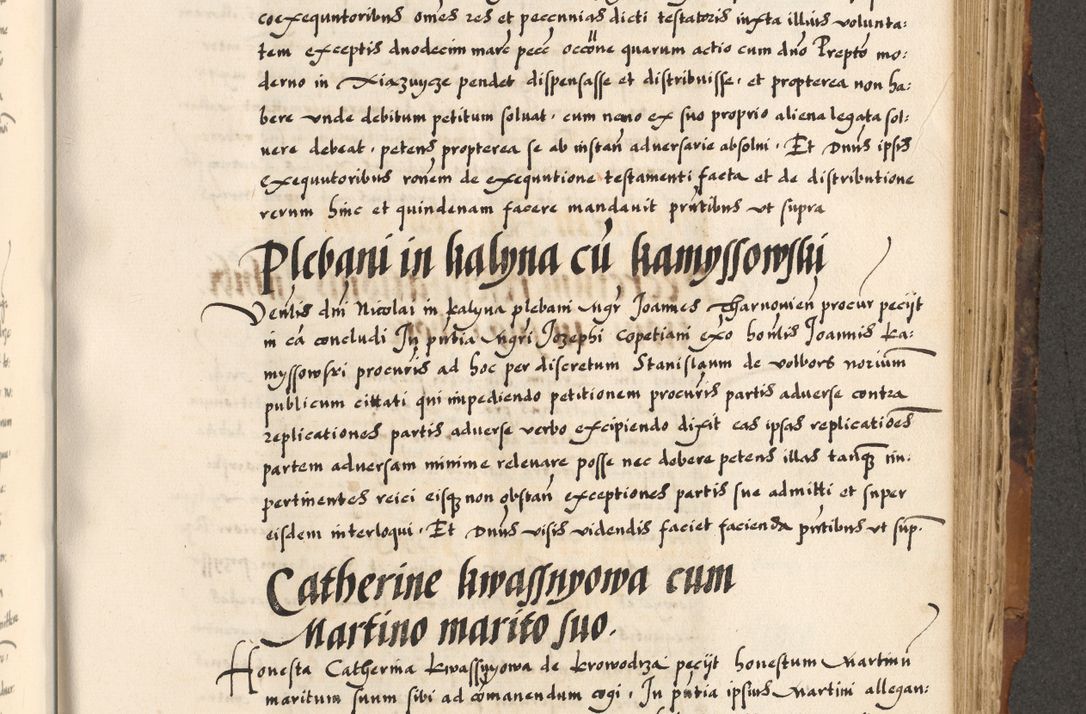 coexequutoribus omēs res et pecunias dicti testatoris iuxta illius volunta:
tem exceptis duodecim marc pecc occōne quarum actio cum dno Prepto mo:
derno in Xiazwycze pendet dispensasse et distribuisse, et propterea non ha:
bere unde debitum petitum solvat, cum nemo ex suo proprio aliena legata sol:
vere debeat, petens propterea se ab instan adversarie absolvi, Et Dnus ipsis
exequutoribus ronem de exequutione testamenti facta et de distributione
rerum hinc et quindenam facere mandavit pntibus ut supra
Plebani in kalyna cū kamyssowski
Venlis dni Nicolai in kalyna plebani Mgr Joannes Tharnovien procur pecijt
in cā concludi In pntia Mgri Jozephi Copetiani exo honlis Joannis Ka:
myssowski procuris ad hoc per discretum Stanislaum de volbors norium
publicum cittati qui impediendo petitionem procuris partis adverse contra
replicationes partis adverse verbo excipiendo dixit eas ipsas replicatioes
partem adversam minime relevare posse nec debere petens illas tanq im:
pertinentes reici eisq non obstan exceptiones partis sue admitti et super
eisdem interloqui, Et Dnus visis videndis faciet facienda pntibus ut sup.
Catherine kwassnyowa cum
Martino marito suo.
Honesta Catherina kwassnyowa de krowodrza pecijt honestum Martinū
maritum suum sibi ad cōmanendum cogi, In pntia ipsius Martini allegan: